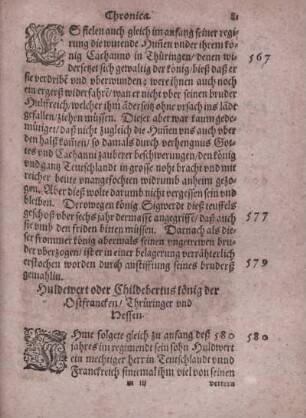 Chronica. 81
ES fielen auch gleich im anfang seiner regi-
rung die wütende Huñen vnder ihrem kö-
nig Cachanno in Thüringen/ denen wi-
dersetzet sich gewaltig der könig/ bieß daß er
sie verdribẽ vnd vberwundẽ; were ihnen auch noch
ein ergers widerfarẽ/ wan er nicht vber seinen bruder
Hulffreich/ welcher ihm ãderseitz ohne vrsach ins läd
gefallen/ ziehen müssen. Dieser aber war kaum gede-
mütiget/ daß nicht zugleich die Huñen vns auch vber
den halß kamen/ so damals durch verhengnus Got-
tes vnd Cachanni zauberer beschwerungen/ den könig
vnd gantz Teutschland in grosse noht bracht vnd mit
reicher beute vnangefochten widrumb anheim gezo-
gen. Aber dieß wolte darumb nicht vergessen sein vnd
bleiben. Derowegen könig Sigwerdt dieß teuffels
geschoß vber sechs jahr dermasse angegriffẽ/ daß auch
sie vmb den friden bitten müssen. Darnach als die-
ser frommer könig abermals seinen vngetrewen bru-
der vberzogen/ ist er in einer belagerung verrähterlich
erstochen worden durch anstifftung seines bruders
gemahlin.
567
577
579
Huldewert oder Childebertus könig der
Ostfrancken/ Thüringer vnd
Hessen.
IHme folgete gleich zu anfang deß 580
jahres im regimendt sein sohn Huldwert
ein mechtiger herr in Teutschlandt vnnd
Franckreich sintemal ihm viel von seinen
580
m iij vettern